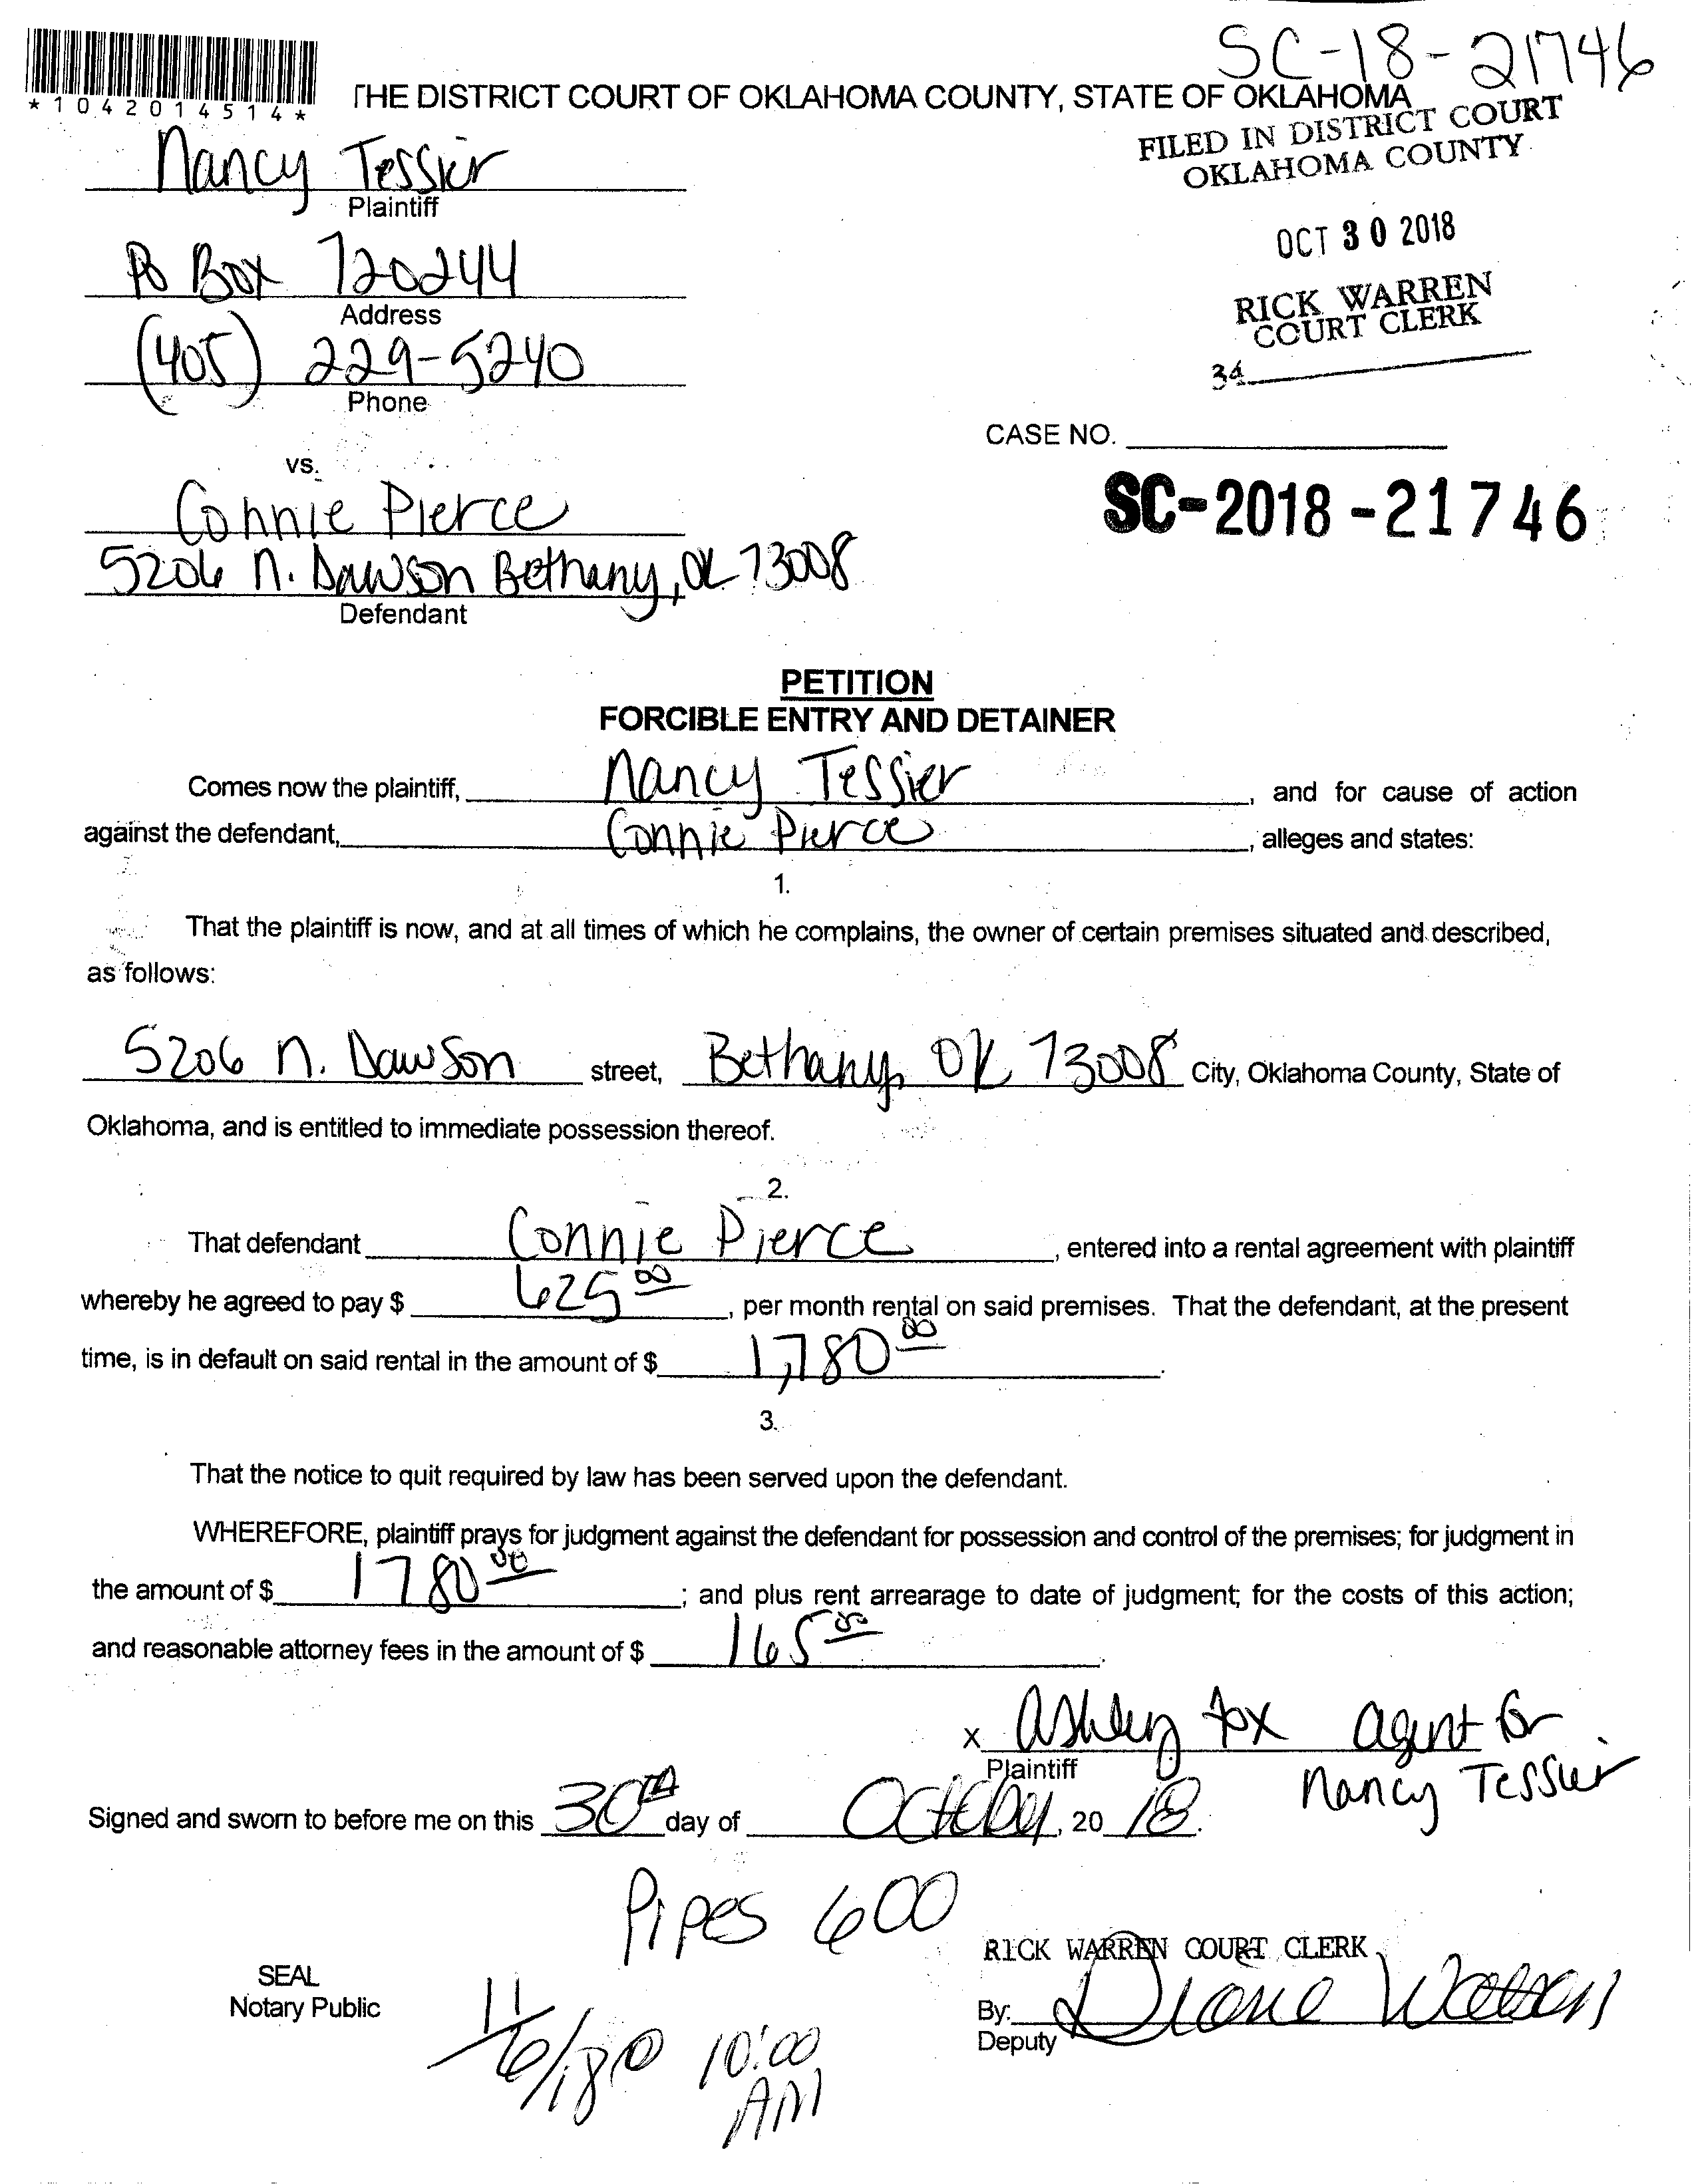 SC-18-21746
*1042014514*
THE DISTRICT COURT OF OKLAHOMA COUNTY, STATE OF OKLAHOMA
FILED IN DISTRICT COURT
OKLAHOMA COUNTY
OCT 30 2018
RICK WARREN
COURT CLERK
34
Nancy Tessier
Plaintiff
PO Box 720244
Address
(405) 229-5240
Phone
CASE NO.
SC-2018-21746
vs.
Connie Pierce
5206 N. Dawson Bethany, OK 73008
Defendant
PETITION
FORCIBLE ENTRY AND DETAINER
Comes now the plaintiff, Nancy Tessier, and for cause of action
against the defendant, Connie Pierce, alleges and states:
1.
That the plaintiff is now, and at all times of which he complains, the owner of certain premises situated and described,
as follows:
5206 N. Dawson street, Bethany, OK 73008 City, Oklahoma County, State of
Oklahoma, and is entitled to immediate possession thereof.
2.
That defendant Connie Pierce, entered into a rental agreement with plaintiff
whereby he agreed to pay $ 625 00, per month rental on said premises. That the defendant, at the present
time, is in default on said rental in the amount of $ 1,780 00.
3.
That the notice to quit required by law has been served upon the defendant.
WHEREFORE, plaintiff prays for judgment against the defendant for possession and control of the premises; for judgment in
the amount of $ 1780 00; and plus rent arrearage to date of judgment; for the costs of this action;
and reasonable attorney fees in the amount of $ 165 00.
x Ashley Fox agent for
Plaintiff
Nancy Tessier
Signed and sworn to before me on this 30TH day of October, 20 18.
Pipes 600
RICK WARREN COURT CLERK
SEAL
Notary Public
By: Diane Watson
Deputy
11/6/18 @ 10:00
AM